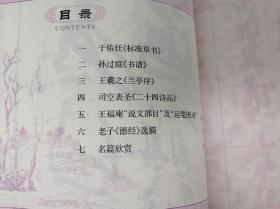 目录
CONTENTS
一 于佑任《标准草书》
二 孙过庭《书谱》
三 王羲之《兰亭序》
四 司空表圣《二十四诗品》
五 王福庵“说文部目”及“运笔图录”
六 老子《德经》选摘
七 名篇欣赏